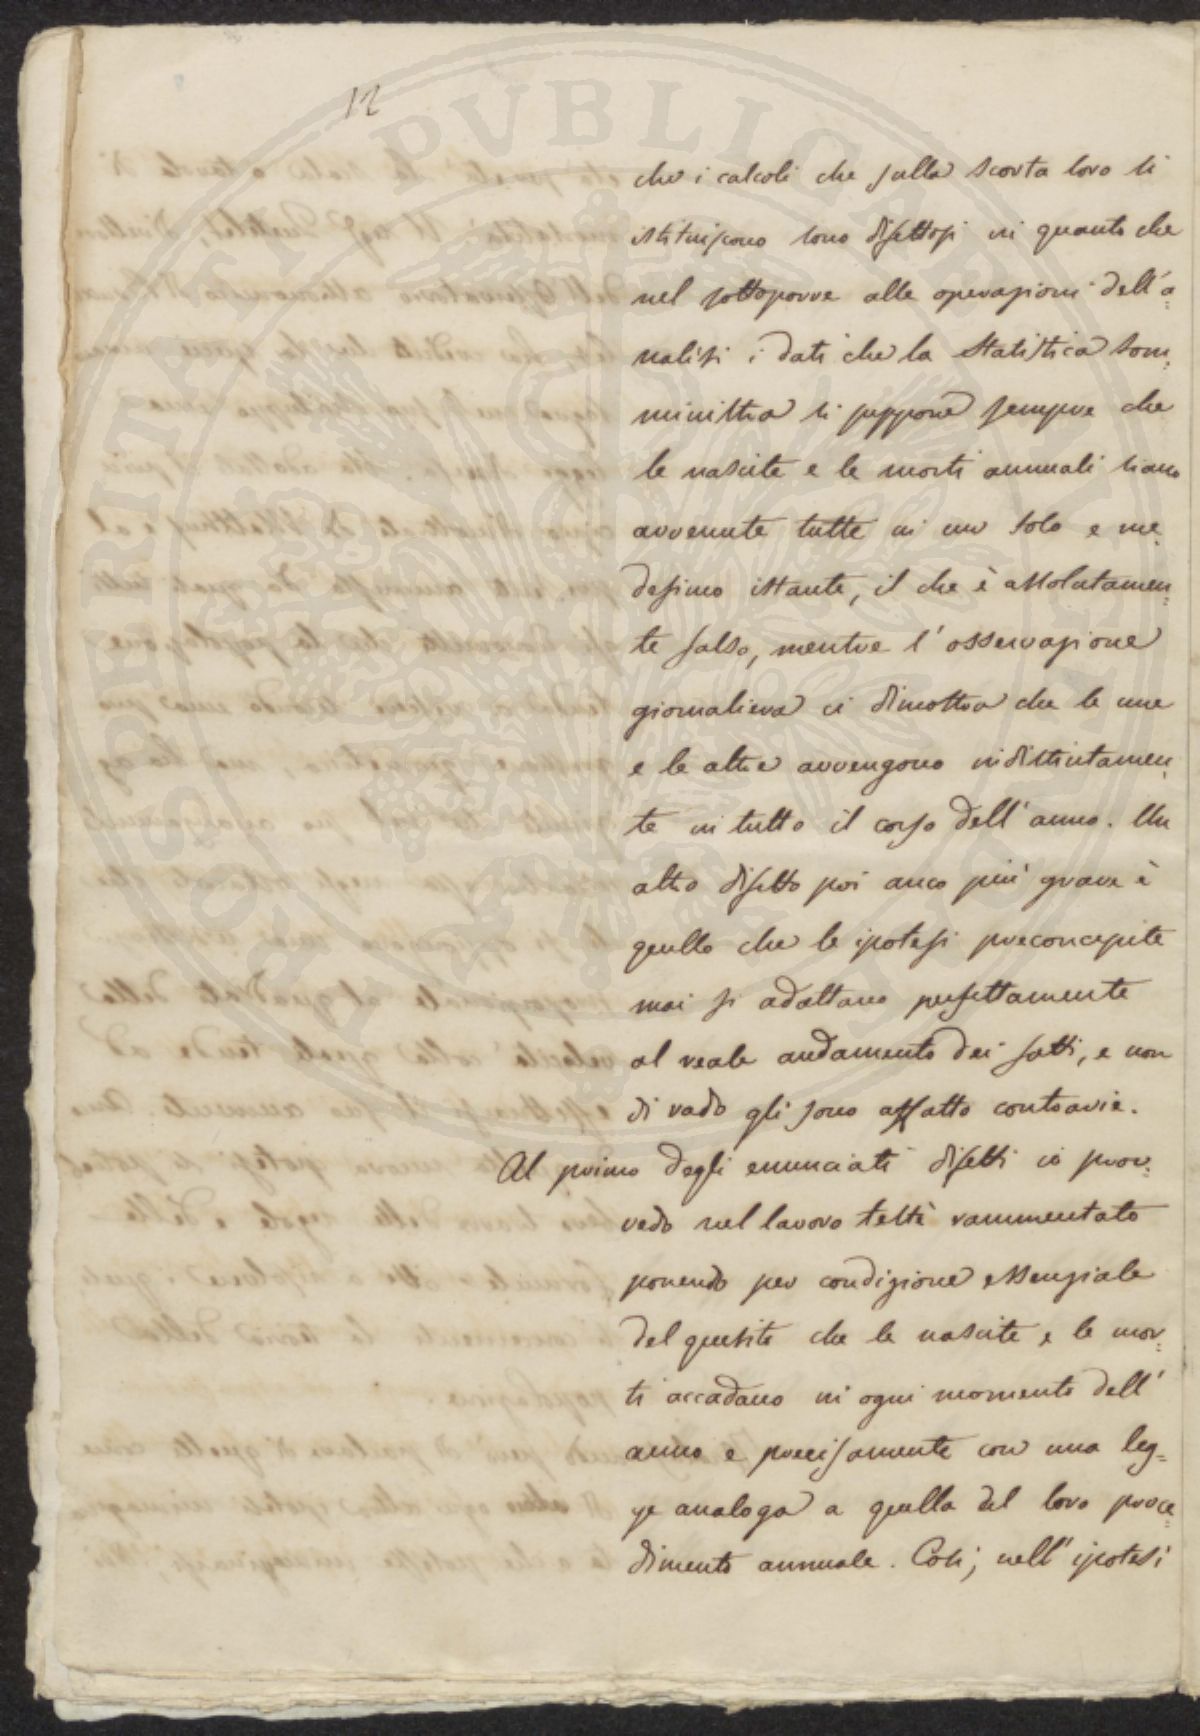 12
che i calcoli che sulla scorta loro si
istituiscono sono difettosi in quanto che
nel sottoporre alle operazioni dell'a=
nalisi i dati che la statistica som=
ministra si suppone sempre che
le nascite e le morti annuali siano
avvenute tutte in un solo e me=
desimo istante, il che è assolutamen=
te falso, mentre l'osservazione
giornaliera ci dimostra che le une
e le altre avvengono indistintamen=
te in tutto il corso dell'anno. Un
altro difetto poi anco più grave è
quello che le ipotesi preconcepite
mai si adattano perfettamente
al reale andamento dei fatti, e non
di rado gli sono affatto contrarie.
Al primo degli enunciati difetti io prov=
vedo nel lavoro testè rammentato
ponendo per condizione essenziale
del quesito che le nascite e le mor=
ti accadano in ogni momento dell'
anno e precisamente con una leg=
ge analoga a quella del loro proce=
dimento annuale. Così, nell'ipotesi